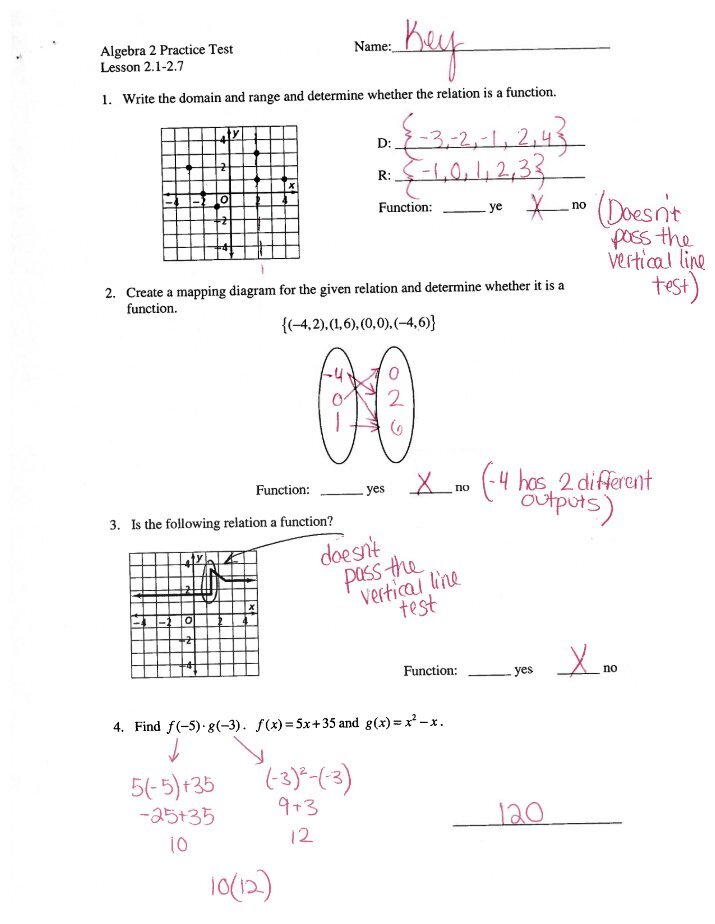 Algebra 2 Practice Test
Lesson 2.1-2.7
Name: Key
1. Write the domain and range and determine whether the relation is a function.
4 y
2
x
-4 -2 O 2 4
-2
-4
D: {-3,-2,-1, 2,4}
R: {-1,0,1,2,3}
Function: ______ ye X no (Doesn't
pass the
vertical line
test)
2. Create a mapping diagram for the given relation and determine whether it is a
function.
{(−4,2),(1,6),(0,0),(−4,6)}
-4 0
0 2
1 6
Function: ______ yes X no (-4 has 2 different
outputs)
3. Is the following relation a function?
4 y
2
x
-4 -2 O 2 4
-2
-4
doesn't
pass the
vertical line
test
Function: ______ yes X no
4. Find f(−5)·g(−3). f(x)=5x+35 and g(x)=x²−x.
5(-5)+35 (-3)²-(-3)
-25+35 9+3
10 12
120
10(12)